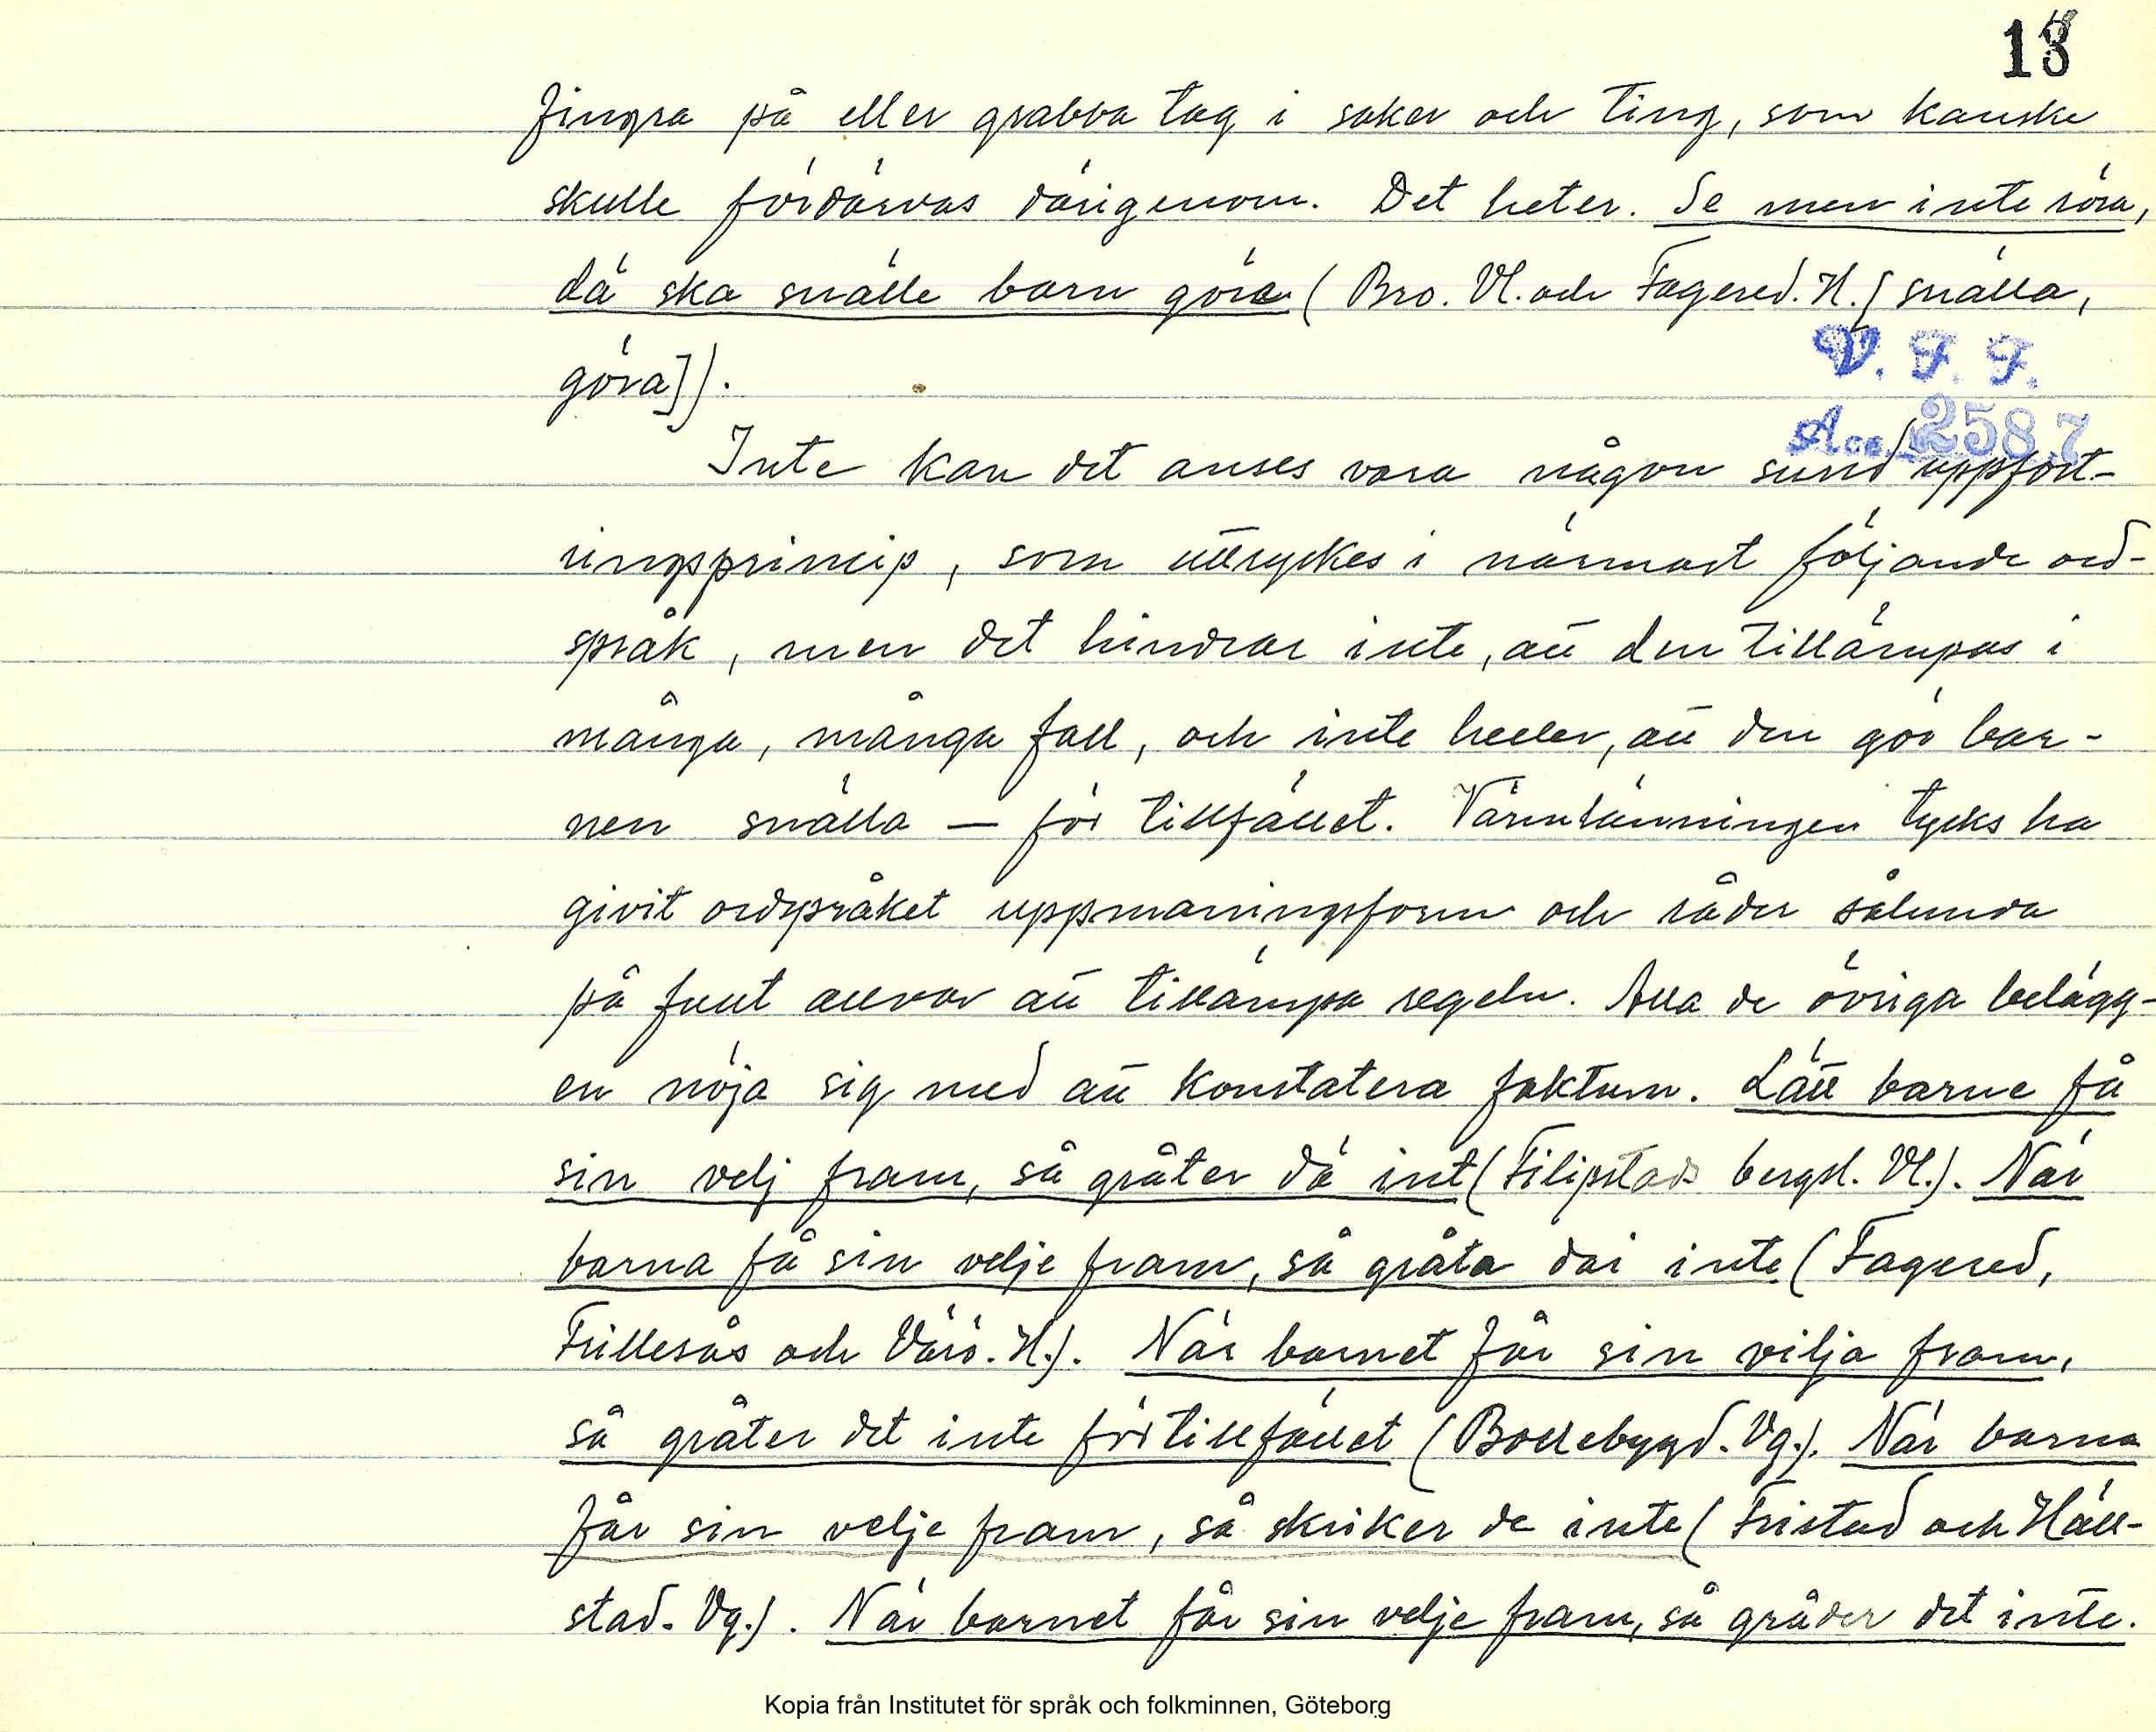 18
fingra på eller grabba tag i saker och ting, som kanske
skulle fördärvas därigenom. Det heter. Se men inte röra,
dä ska snälle barn göra (Bro. Vl. och Fagered. H. [snälla,
göra]).
V. F. F.
Acc. 2587
Inte kan det anses vara någon sund uppfost-
ringsprincip, som uttryckes i närmast följande ord-
språk, men det hindrar inte, att den tillämpas i
många, många fall, och inte heller, att den gör bar-
nen snälla — för tillfället. Värmlänningen tycks ha
givit ordspråket uppmaningsform och råder sålunda
på fullt allvar att tillämpa regeln. Alla de övriga belägg-
en nöja sig med att konstatera faktum. Lätt barne få
sin velj fram, så gråter dä int (Filipstads bergsl. Vl.). När
barna få sin velje fram, så gråta däi inte (Fagered,
Frillesås och Värö. H.). När barnet får sin vilja fram,
så gråter det inte för tillfället (Bollebygd. Vg.). När barna
får sin velje fram, så skriker de inte (Fristad och Häll-
stad. Vg.). När barnet får sin velje fram, så gråder det inte.
Kopia från Institutet för språk och folkminnen, Göteborg